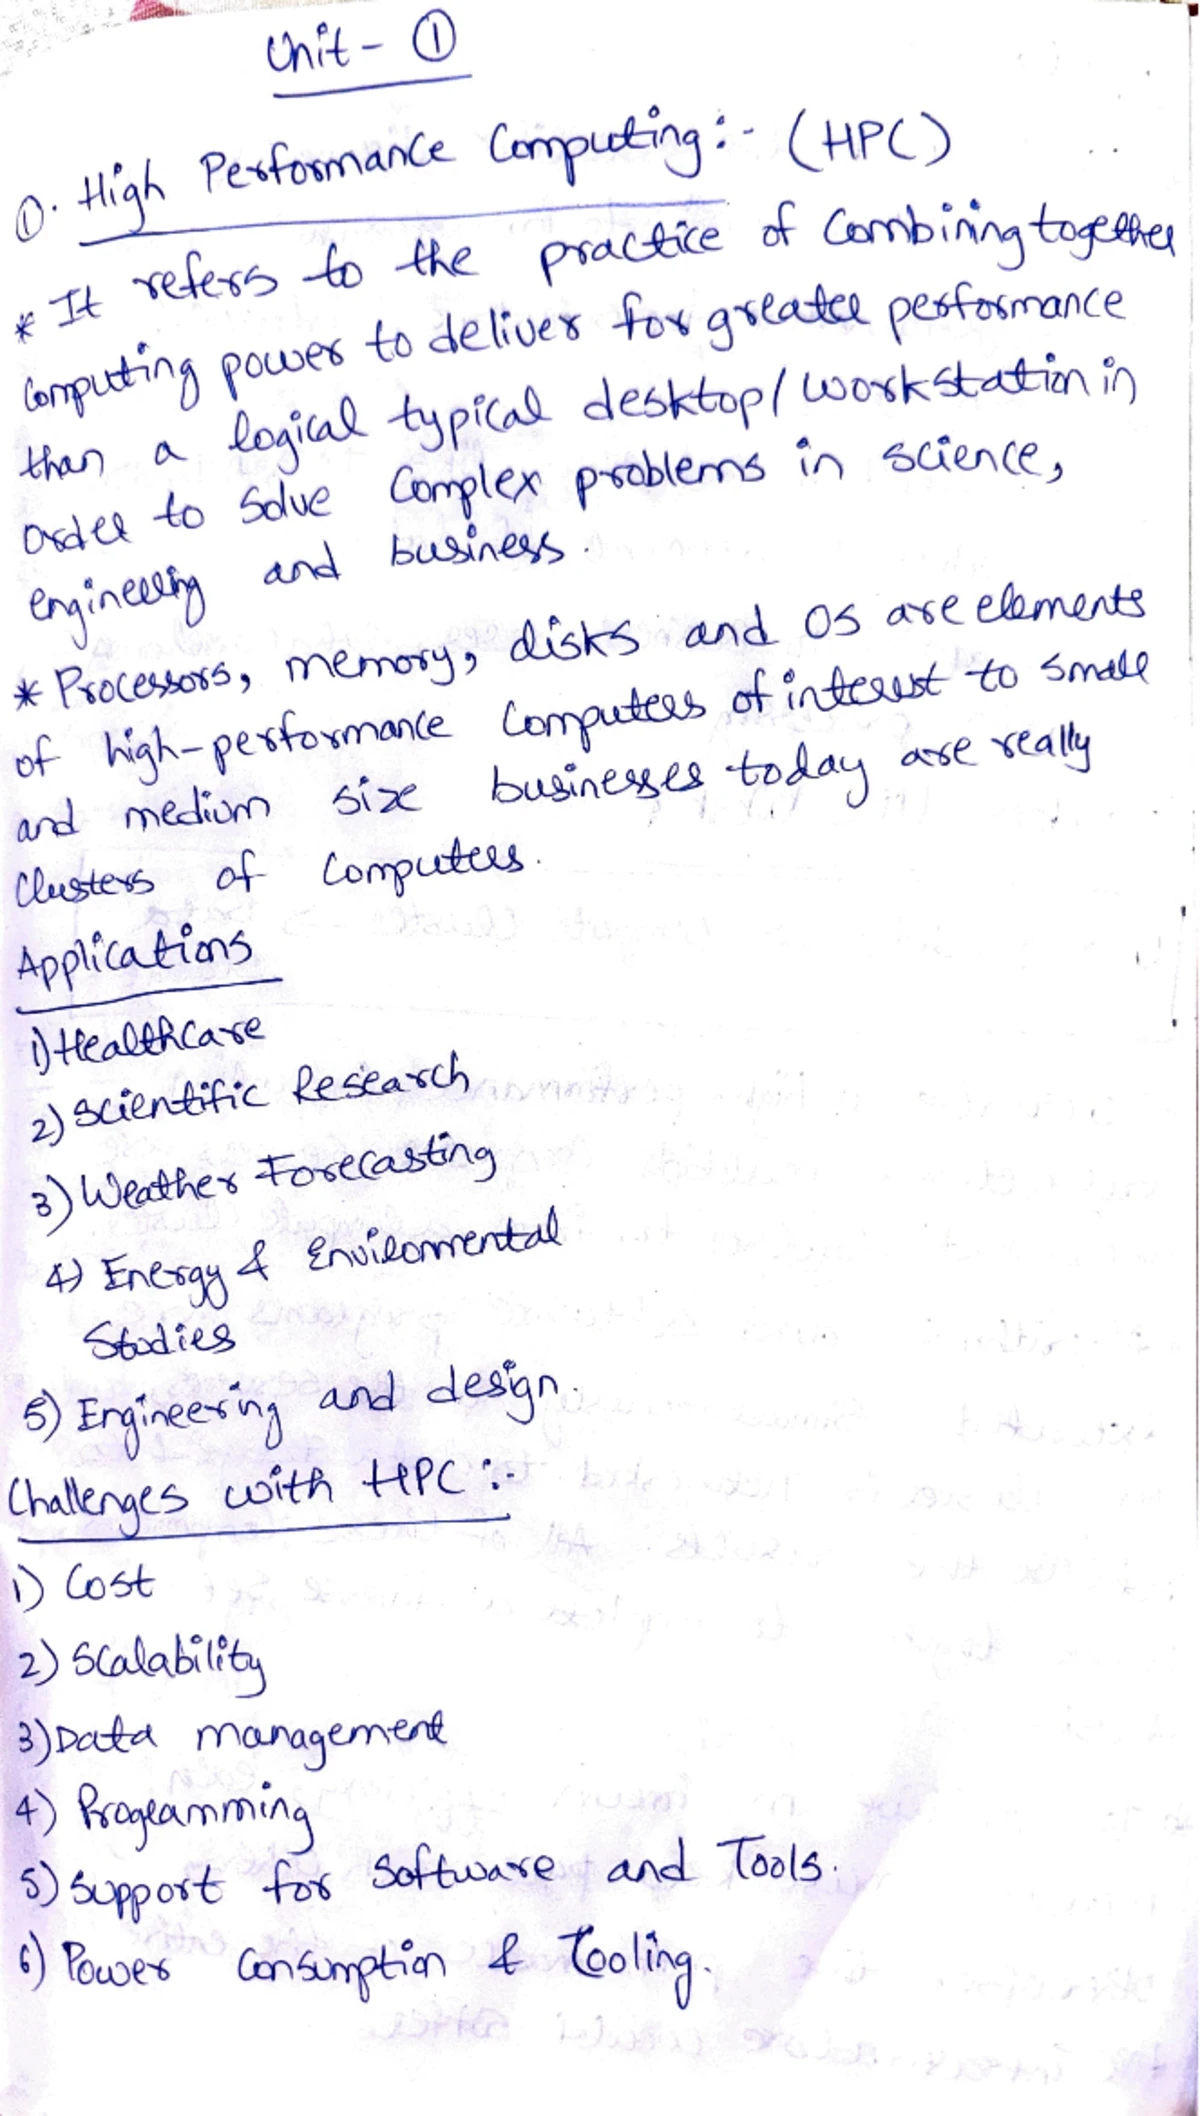 Unit - ①
①. High Performance Computing :- (HPC)
* It refers to the practice of Combining together
Computing power to deliver for greater performance
than a logical typical desktop/workstation in
order to Solve Complex problems in science,
engineering and business.
* Processors, memory, disks and OS are elements
of high-performance Computers of interest to Small
and medium size businesses today are really
Clusters of Computers.
Applications
1) Healthcare
2) Scientific Research
3) Weather Forecasting
4) Energy & Environmental
Studies
5) Engineering and design.
Challenges with HPC :-
1) Cost
2) Scalability
3) Data management
4) Programming
5) Support for Software and Tools.
6) Power Consumption & Tooling.